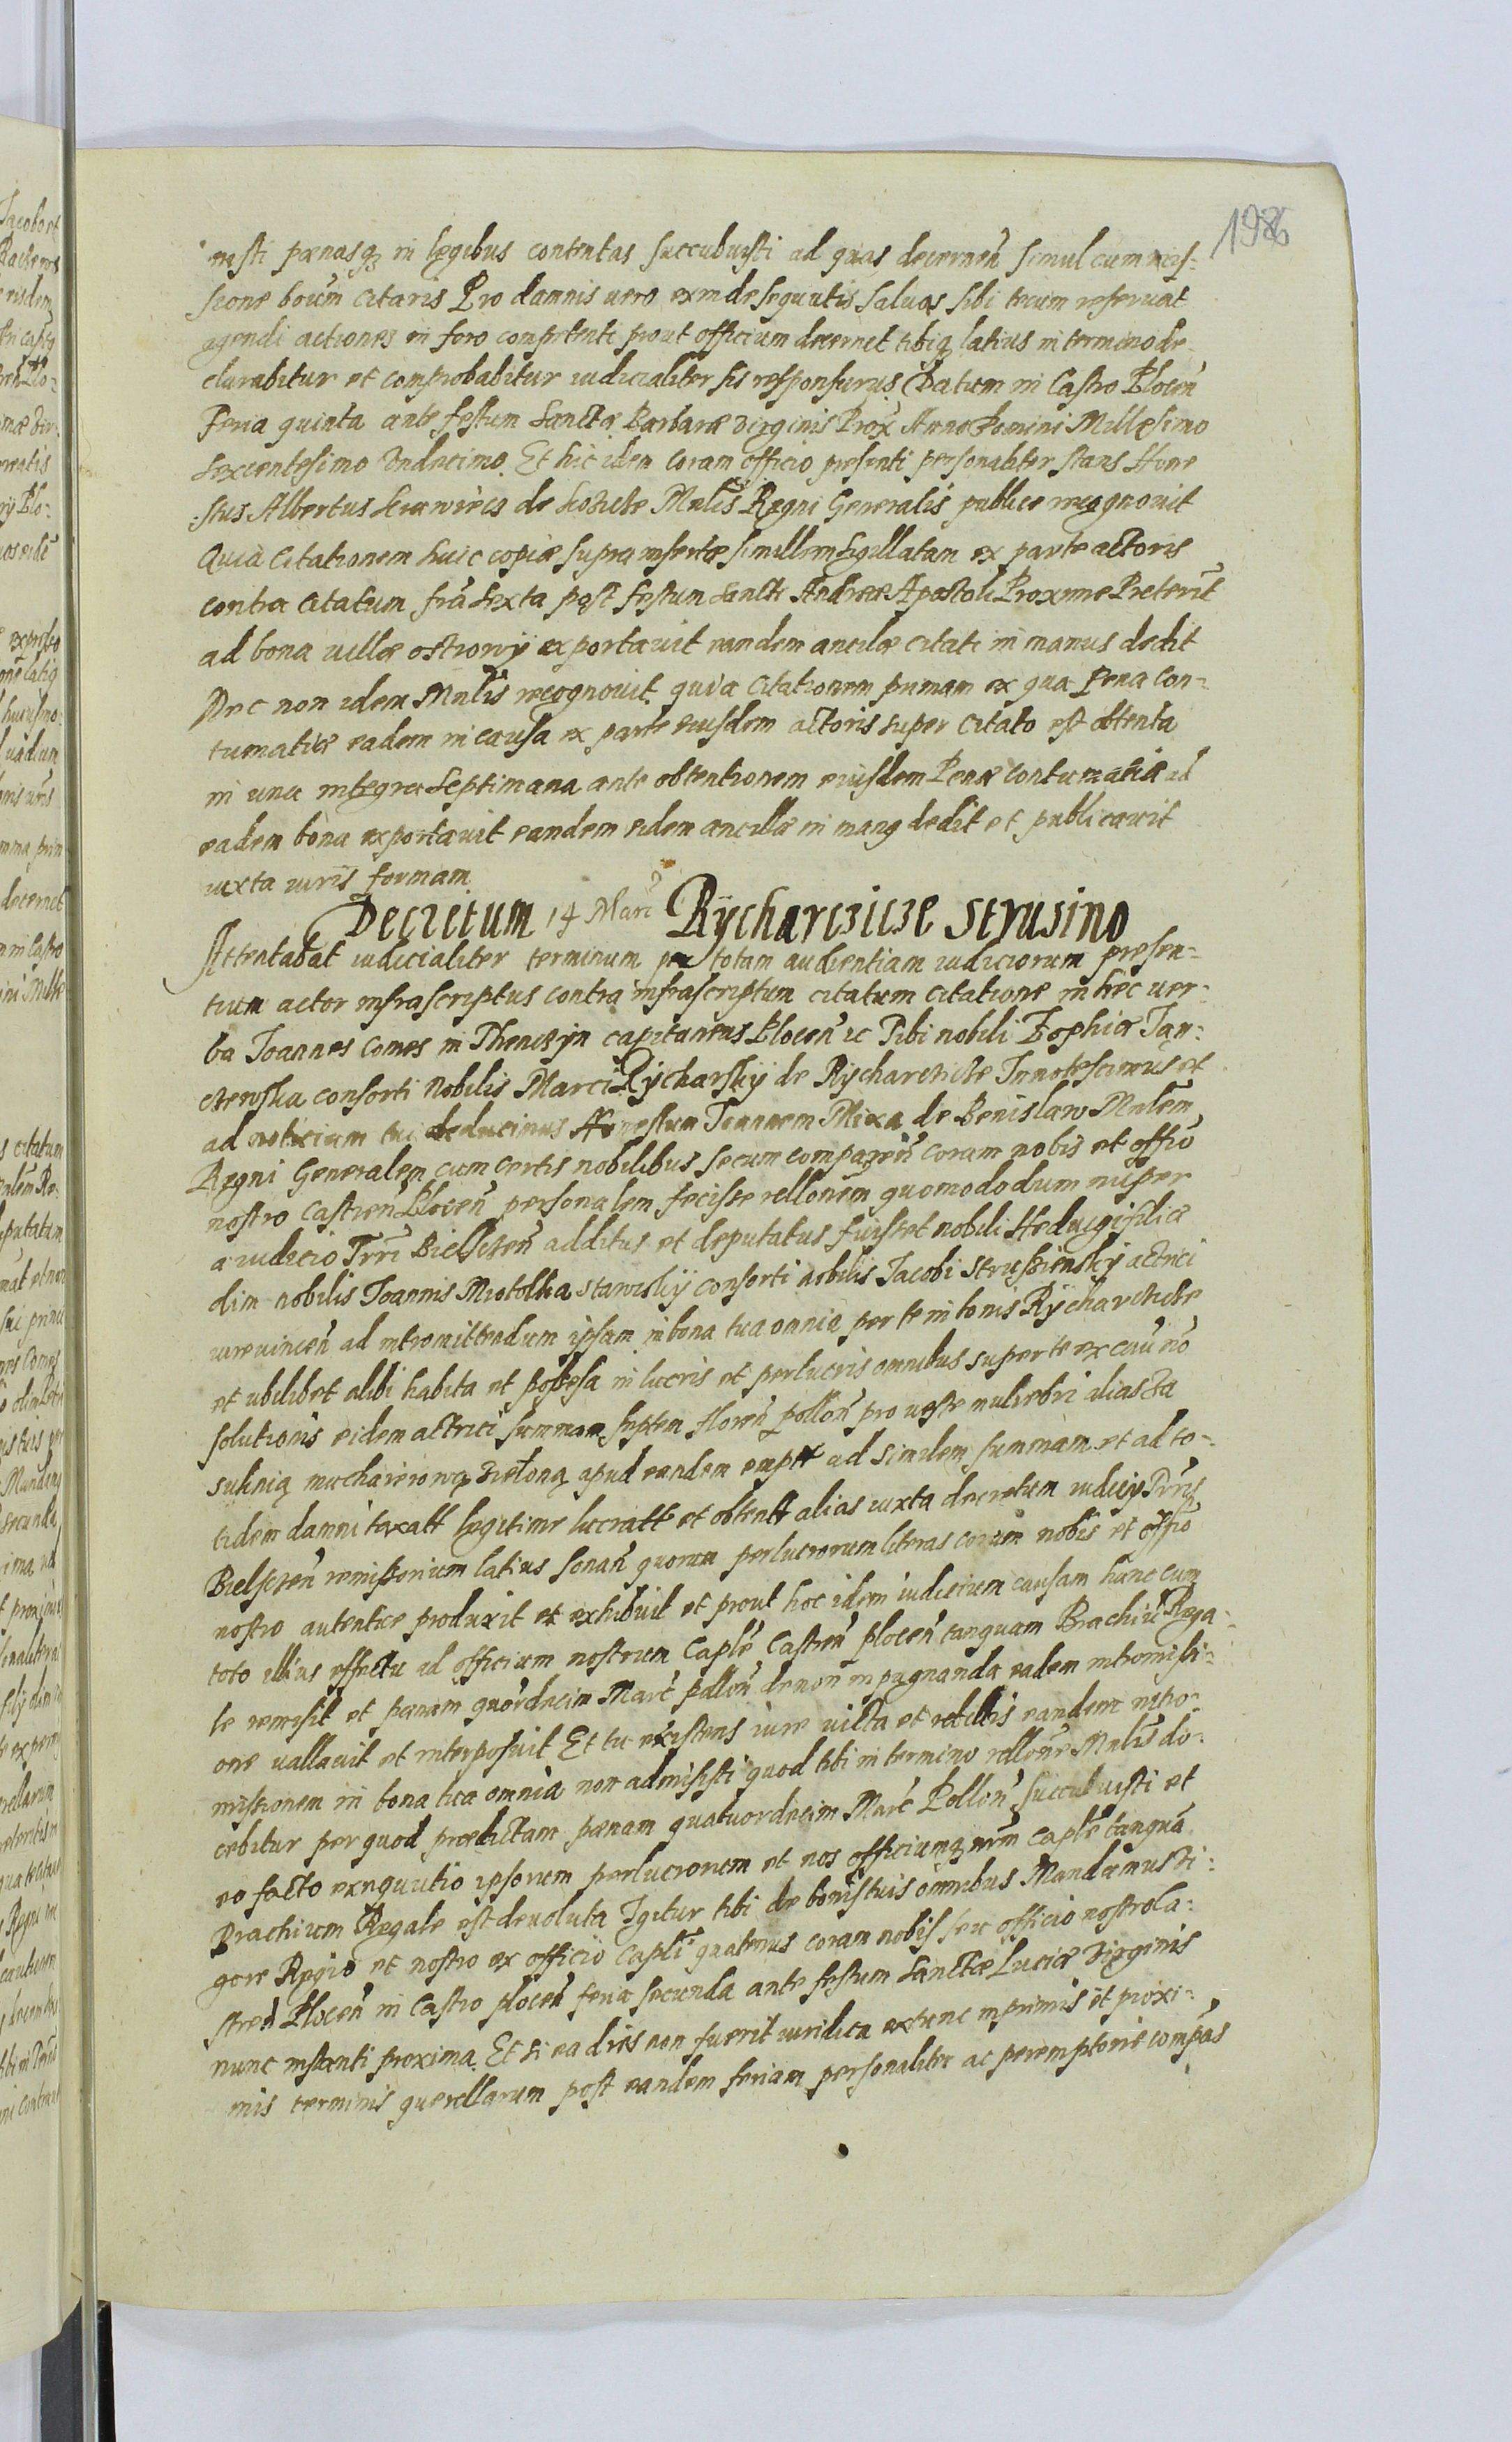 1986
risti pœnasq; in legibus contentas succubuisti ad quas decernen̄ simul cum remis-
sione boum citaris Pro damnis vero exinde sequutis saluas sibi tecum reseruat
agendi actiones in foro competenti prout officium decernet tibiq; latius in termino de-
clarabitur et comprobabitur iudicialiter sis responsurus Datum in Castro Plocen̄
Feria quinta ante festum Sanctæ Barbaræ Virginis Prox̄ Anno Domini Millesimo
Sexcentesimo Vndecimo. Et hic idem coram officio presenti personaliter stans Hone
stus Albertus de Mnlis̄ Regni Generalis publice recognouit
Quia Citationem huic copiæ supra insertæ similem sigillatam ex parte actoris
contra citatum fr̄a Sexta post festum Sancti Andreæ Apostoli Proxime Preterit̄
ad bona villæ ostrowy exportauit eandem ancilæ citati in manus dedit
Nec non idem Mnlis̄ recognouit quia Citationem primam ex qua Pena Con-
tumatiæ eadem in causa ex parte eiusdem actoris super Citato est obtenta
in una integra Septimana ante obtentionem eiusdem Penæ Contumatiæ ad
eadem bona exportauit eandem eidem ancillæ in mang dedit et publicauit
iuxta iuris formam
Decretum 14 Marc̄ Rÿcharcziczе Strusino
Attentabat iudicialiter terminum per totam audientiam iudiciorum presen-
tium actor infrascriptus contra infrascriptum citatum Citatione in hec uer-
ba Joannes Comes in Thenczÿn capitaneus Plocen̄ ic Tibi nobili Zophiæ Jan-
czewska consorti Nobilis Marci Rÿcharskÿ de Rÿchareticze Innotescimus et
ad noticiam tui deducimus Honestum Joannem Mixa de Benislaw Mnlem̄
Regni Generalem cum certis nobilibus secum comparen̄ coram nobis et offio̅
nostro Castren̄ Plocen̄ personalem fecisse rellonem̄ quomodo dum nuper
a iudicio Trri̅ Bielscen̄ additus et deputatus fuisset nobili Heduigi filiæ
olim nobilis Joannis Miotolka stawskÿ consorti nobilis Jacobi Struszienskÿ actrici
iureuincen̄ ad intromittendum ipsam in bona tua omnia per te in bonis Rÿcharcticze
et ubilibet alibi habita et possessa in lucris et perlucris omnibus super te ex cau̅ no̅
solutionis eidem actrici summam septem floren̄ pollon̄ pro ueste muliebri alias za
suknią mucharerową Zieloną apud eandem empt ad similem summam et ad to-
tidem damni taxatt legitime lucratt et obtentt alias iuxta decretum iudicÿ Trris̄
Bielscen̄ remissorium latius sonan̄ quorum perlucrorum literas coram nobis et offio̅
nostro autentice produxit et exhibuit et prout hoc idem iudicium causam hanc cum
toto illius effectu ad officium nostrum Caple̅ Castren̄ plocen̄ tanquam Brachiu̅ Rega-
le remisit et pœnam quordecim Marc̄ pollon̄ de non inpugnanda eadem intromissi-
one uallauit et interposuit Et tu existens iure uicta et rebellis eandem intro-
missionem in bona tua omnia non admisisti quod tibi in termino rellone̅ Mnlis̄ do-
cebitur per quod prædictam pœnam quatuordecim Marc̄ Pollon̄ succubuisti et
eo facto exequutio ipsorum perlucrorum et nos officiumq; nrm̄ Caple̅ tanqua̅
Brachium Regale est deuoluta Igitur tibi de bonis tuis omnibus Mandamus Ri-
gore Regio et nostro ex officii Capli̅ quatenus coram nobis seu officio nostro Ca-
stren̄ Plocen̄ in Castro plocen̄ feria secunda ante festum Sanctæ Luciæ Virginis
nunc instanti proxima. Et si ea dies non fuerit iuridica extunc inprimis et proxi-
mis terminis querellarum post eandem feriam personaliter ac peremptorie compas̅